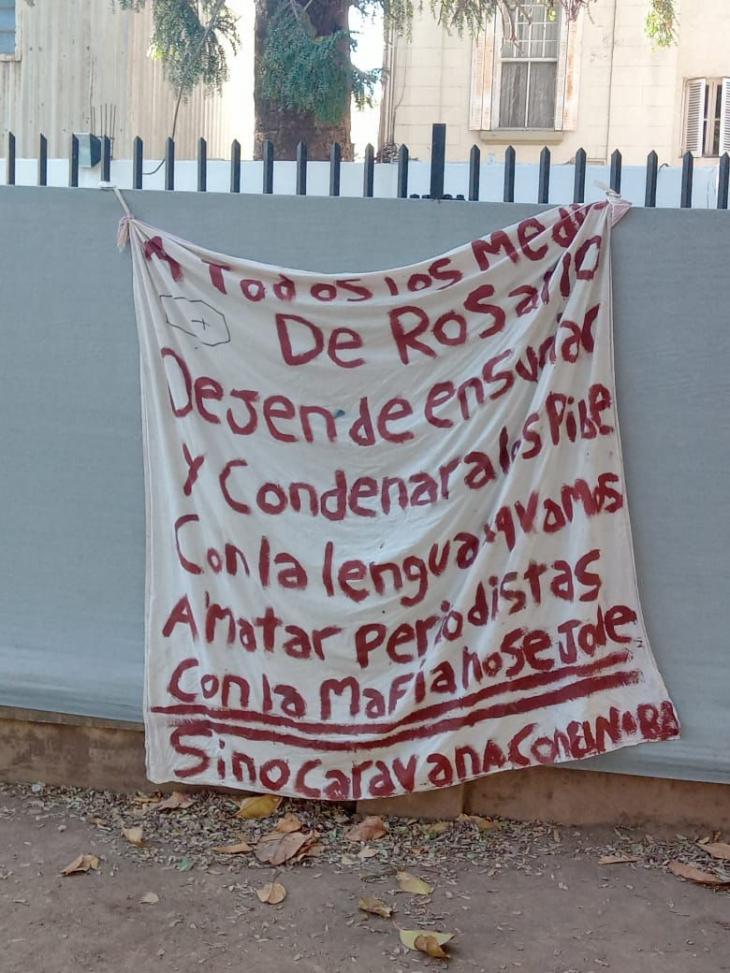 A Todos los Medio
De Rosario
Dejen de ensuciar
y Condenar a los Pibe
Con la lengua xq vamos
A Matar Periodistas
Con la Mafia no Se Jode
Sino Caravana Con el